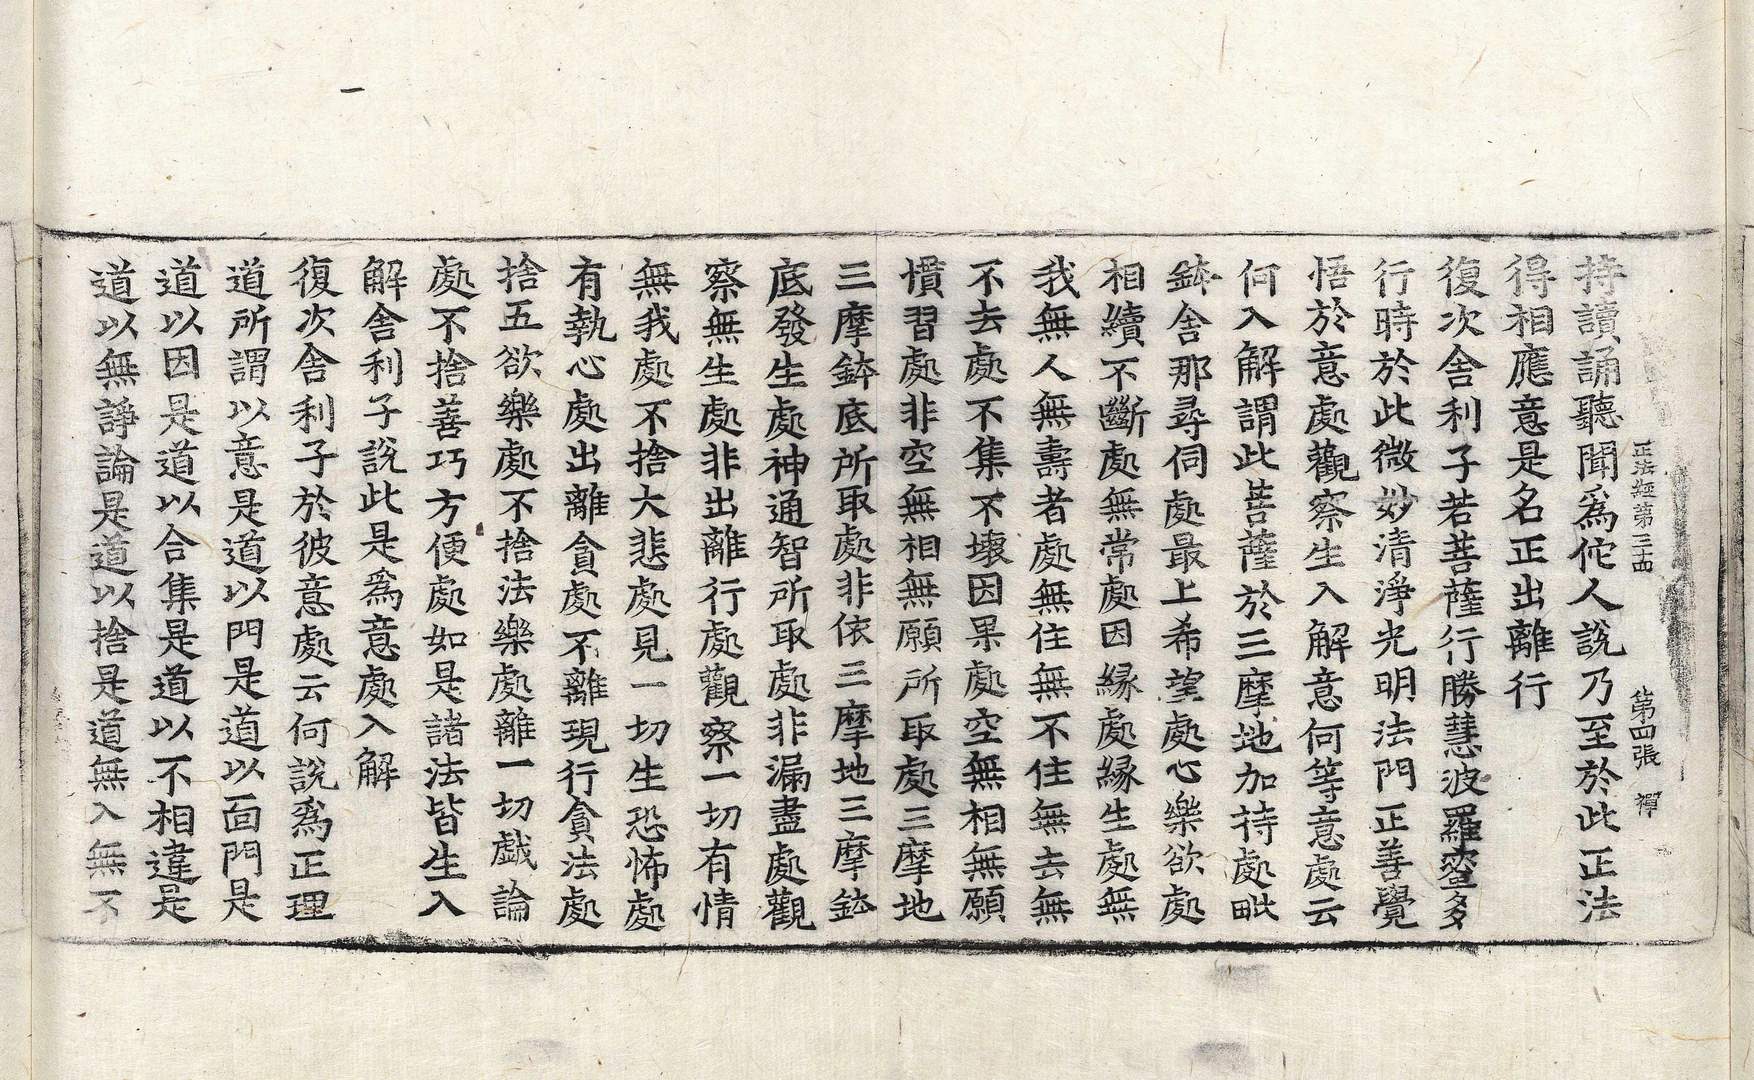 正法經第三十四　第四張　禪
持讀誦聽聞爲佗人說乃至於此正法
得相應意是名正出離行
復次舍利子若菩薩行勝慧波羅蜜多
行時於此微妙清淨光明法門正善覺
悟於意處觀察生入解意何等意處云
何入解謂此菩薩於三摩地加持處毗
鉢舍那尋伺處最上希望處心樂欲處
相續不斷處無常處因緣處緣生處無
我無人無壽者處無住無不住無去無
不去處不集不壞因果處空無相無願
慣習處非空無相無願所取處三摩地
三摩鉢底所取處非依三摩地三摩鉢
底發生處神通智所取處非漏盡處觀
察無生處非出離行處觀察一切有情
無我處不捨大悲處見一切生恐怖處
有執心處出離貪處不離現行貪法處
捨五欲樂處不捨法樂處離一切戲論
處不捨善巧方便處如是諸法皆生入
解舍利子說此是爲意處入解
復次舍利子於彼意處云何說爲正理
道所謂以意是道以門是道以面門是
道以因是道以合集是道以不相違是
道以無諍論是道以捨是道無入無不